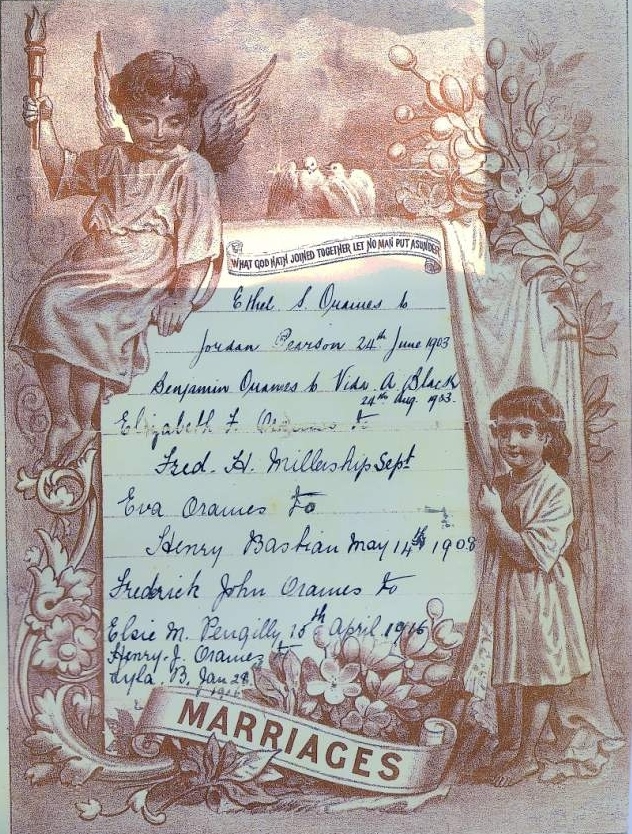 WHAT GOD HATH JOINED TOGETHER LET NO MAN PUT ASUNDER
Ethel S. Orames to
Jordan Pearson 24th June 1903
Benjamin Orames to Vida. A. Black
24th Aug. 1903.
Elizabeth F. Orames to
Fred. H. Millership Sept
Eva Orames to
Henry Bastian May 14th 1908
Frederick John Orames to
Elsie M. Pengilly 15th April 1916
Henry. J. Orames to
Lyla. B. Jan 28
1916
MARRIAGES